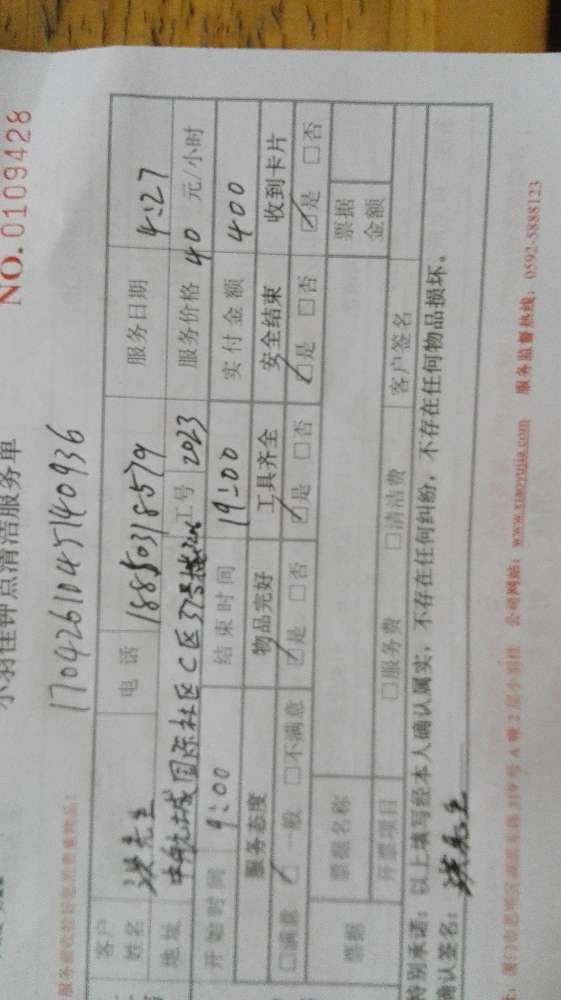 小羽佳钟点清洁服务单
NO.0109428
17042610457140936
客户姓名 洪先生 电话 18850318579 服务日期 4:27
地址 国际社区C区37号楼 工号 2023 服务价格 40 元/小时
开始时间 9:00 结束时间 19:00 实付金额 400
服务态度 物品完好 工具齐全 安全结束 收到卡片
□满意 ☑一般 □不满意 ☑是 □否 ☑是 □否 ☑是 □否 ☑是 □否
票据 票据名称 票据金额
开票项目 □服务费 □清洁费 客户签名
特别承诺：以上填写经本人确认属实，不存在任何纠纷，不存在任何物品损坏。
确认签名：洪先生
A幢2层小羽佳 公司网站：www.xiaoyujia.com 服务监督热线：0592-5888123